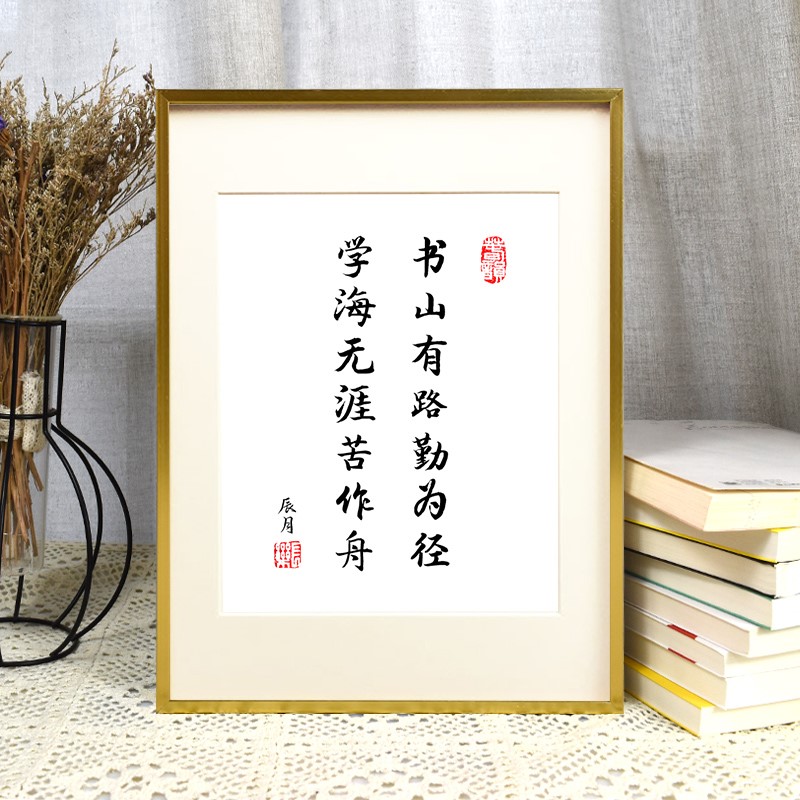 书山有路勤为径
学海无涯苦作舟
辰月
长乐